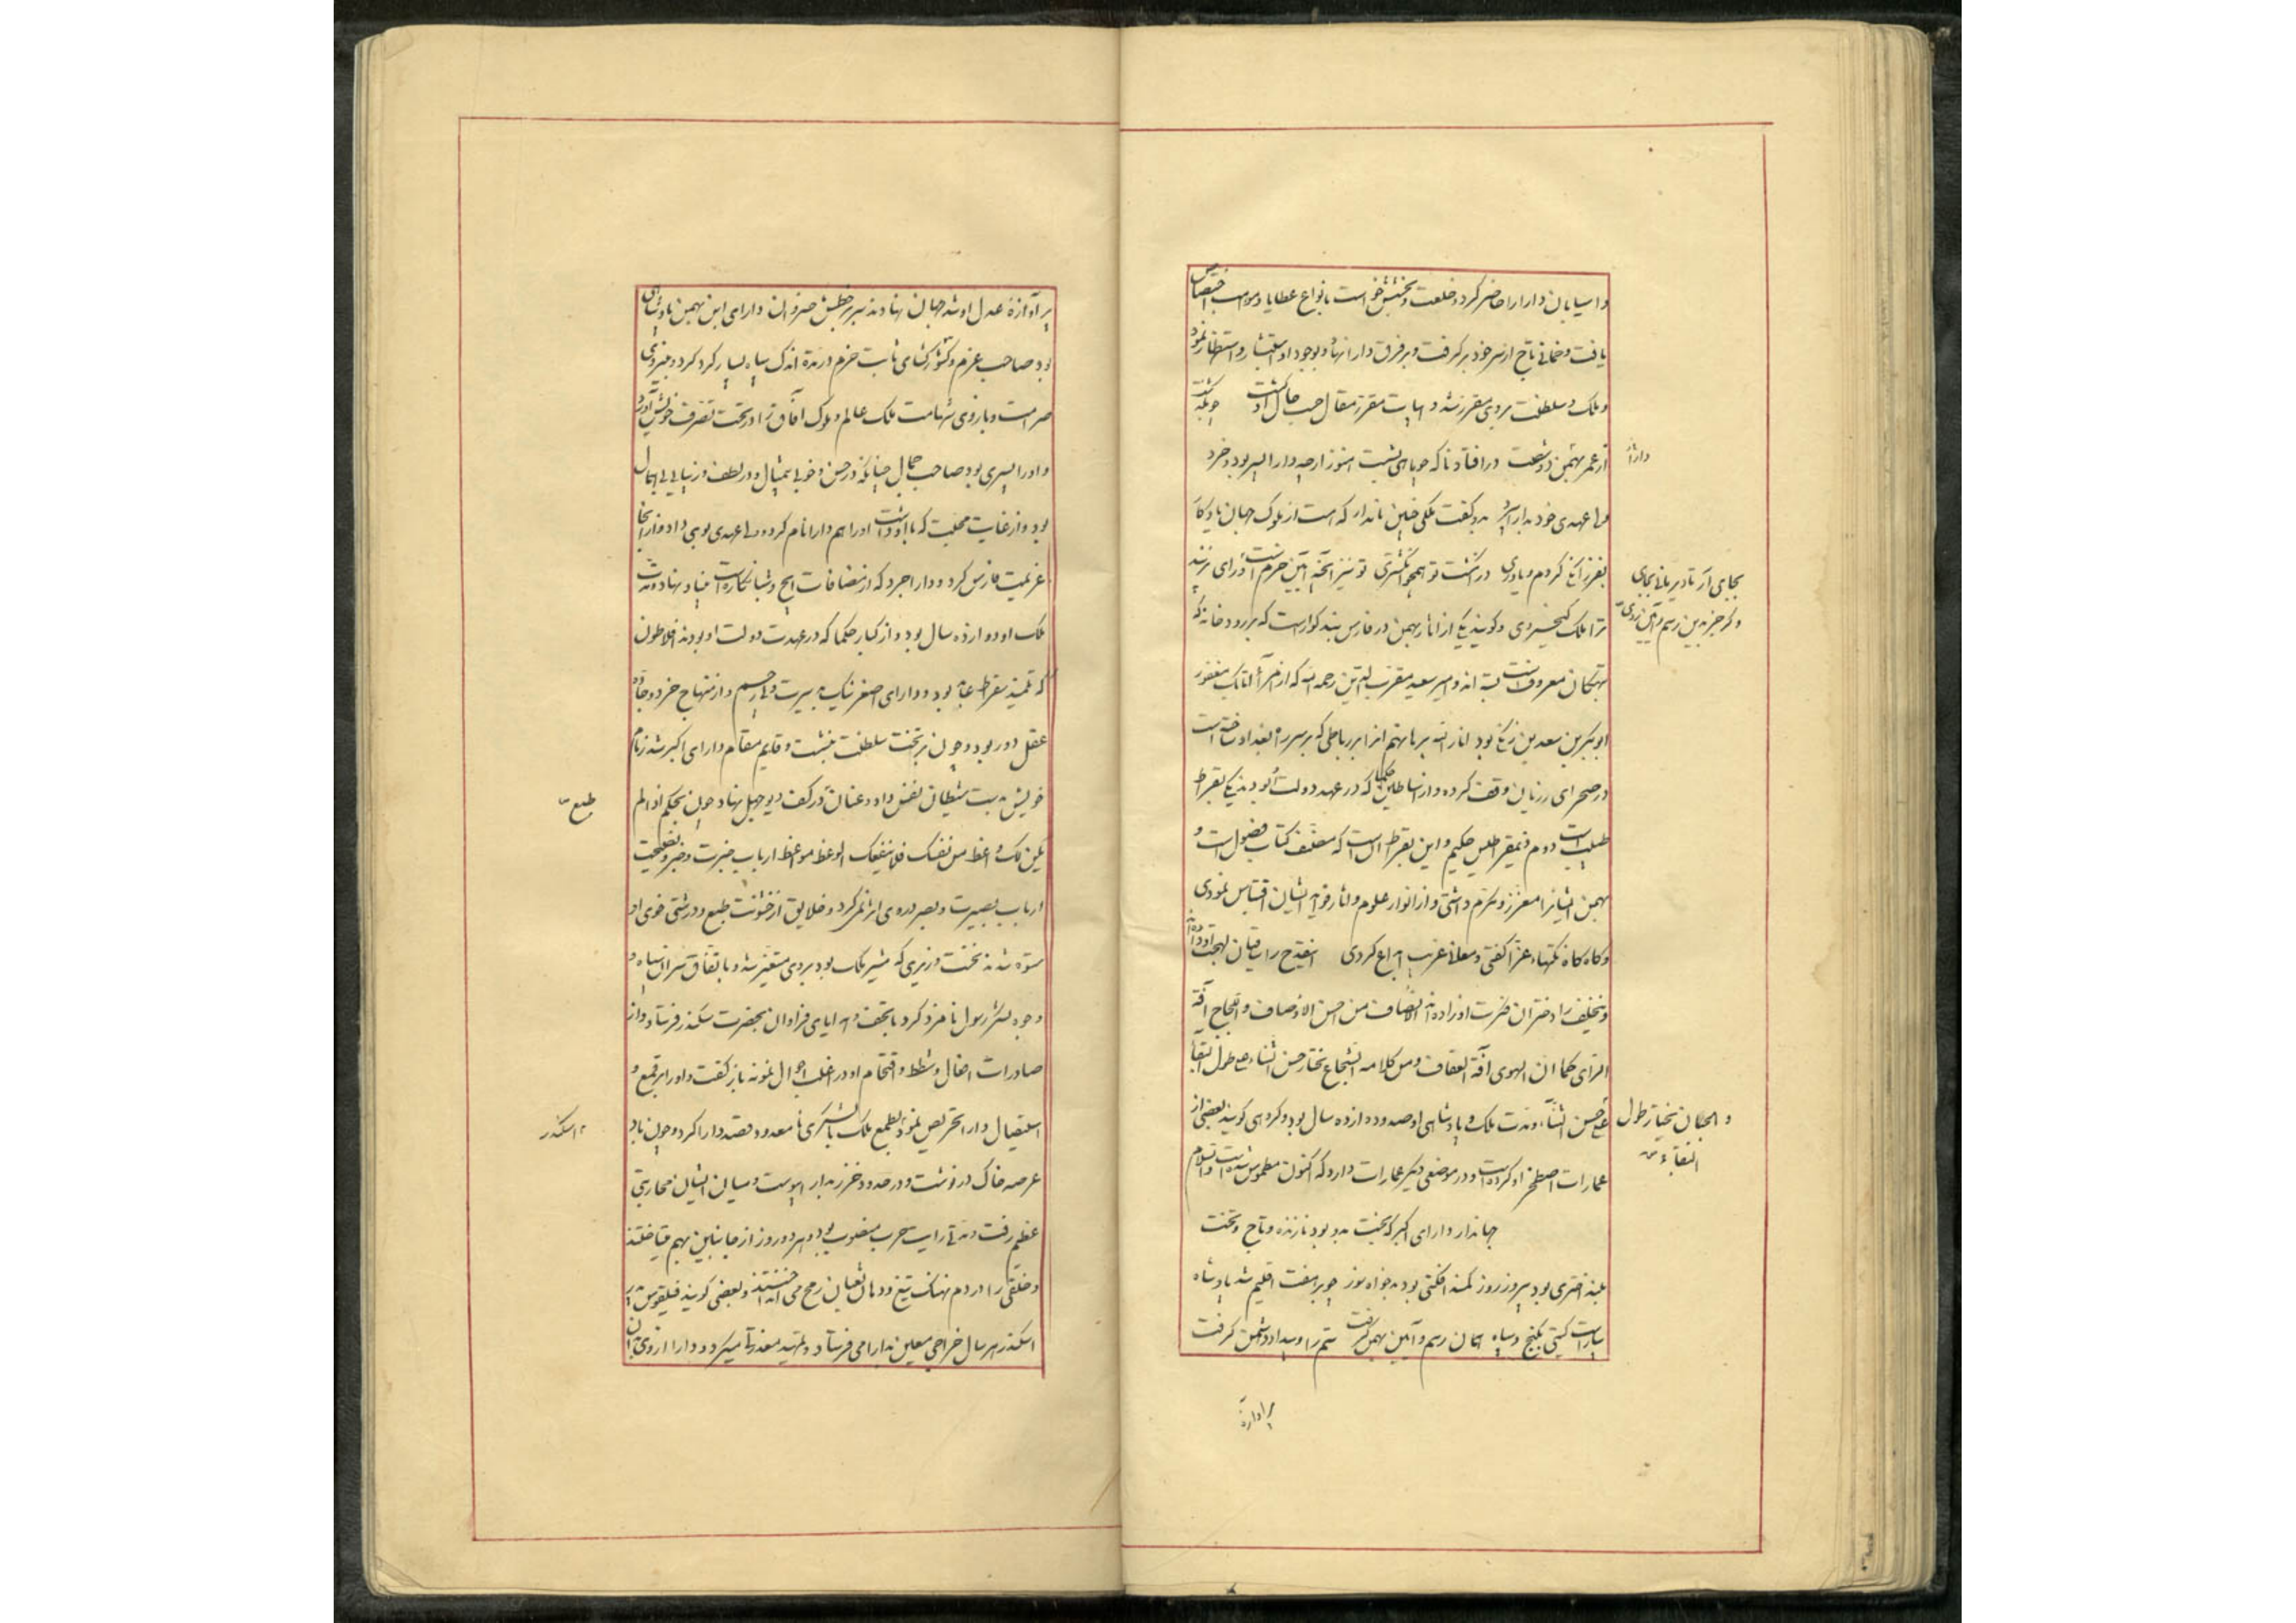 و اسیابان دارا را حاضر کرد و خلعت و بخشش خواست بانواع عطایا و مواهب اختصاص
یافت و خمانی تاج از سر خود برگرفت و بر فرق دارا نهاد و بوجود او استبشار و استظهار نمود
و ملک و سلطنت بروی مقرر شد و ابیات مقرر مقال حسب حال او گشت چو یکچند بگذشت
از عمر بهمن دو شصت در افتاد ناگه چو ماهی بشست هنوز ارچه دارا پسر بود و خرد
ولی عهدی خود بدارا سپرد بدو گفت ملکی چنین نامدار که است از ملوک جهان یادگار
بمغز آنچ کردم و یاوری در انگشت تو همچو انگشتری تو نیز آنچه آیین حزم است و رای مزید
ترا ملک کیخسروی و گویند یکی از آثار بهمن در فارس بند کوارست که بر رودخانه که
بهتکان معروف است بسته اند و امیر سعید مقرب الدین رحمه الله که از امرا اتابک مغفور
ابوبکر بن سعد بن زنگی بود انار الله برهانهم آنرا بر رباطی که بر سر راه بغداد ساخته است
در صحرای رزیان وقف کرده و از اساطین حکما که در عهد دولت او بودند یکی بقراط
طبیب است دوم ذیمقراطیس حکیم و این بقراط آن است که مصنف کتاب فصول است و
بهمن ایشانرا معزز و مکرم داشتی و از انوار علوم و آثار فواید ایشان اقتباس نمودی
و گاه گاه نکتهاء غرا گفتی و معانی غریب ابداع کردی
و بتخلیف را دختران فکرت او زاده اند الانصاف من احسن الاوصاف و اللجاج آفة
الرای کما ان الهوی آفة العفاف و من کلامه الشجاع یختار حسن الثناء علی طول البقا
علی حسن الثنا، و مدت ملک و پادشاهی او صد و دوازده سال بود و گروهی گویند بعضی از
عمارات اصطخر او کرده است و در موضعی دیگر عمارات دارد که اکنون مطموس شده است والسلام
جهاندار دارای اکبر که بخت بدو بود نازنده و تاج و تخت
بلند اختری بود پیروز روز کمند افکنی بود بدخواه سوز چو بر هفت اقلیم شد پادشاه
بیاراست گیتی بگنج و سپاه همان رسم و آیین بهمن گرفت ستم را و بیداد دشمن گرفت
دارا
بجای آر تا دیر مانی بجای
و گر جز بدین رسم و آیین روی
و الجبان یختار طول
البقاء
بر آوازه
بر آوازهٔ عدل او شد جهان نهادند سر بر خطش خسروان دارای ابن بهمن پادشاهی
بود صاحب عزم و کشورگشای ثابت حزم در مدة اندک سپاه بسیار گرد کرد و بنیروی
صرامت و بازوی شهامت ملک عالم و ملوک آفاق را در تحت تصرف خویش آورد
و او را پسری بود صاحب جمال چنانکه در حسن و خوبی بیمثال و در لطف و زیبایی بی همال
بود و از غایت محبت که با او داشت او را هم دارا نام کرد و ولی عهدی بوی داد و از آنجا
عزیمت فارس کرد و داراجرد که از مضافات ایج و شبانکاره است بنیاد نهاد و مدت
ملک او دوازده سال بود و از کبار حکما که در عهدت دولت او بودند افلاطون
که تلمیذ سقراط عابد بود و دارای اصغر نیک بد سیرت و بی رسم و از منهاج خرد و جاده
عقل دور بود و چون بر تخت سلطنت بنشست و قایم مقام دارای اکبر شد زمام
خویش بدست شیطان نفس داد و عنان در کف دیو جهل نهاد و چون بحکم اذا لم
یکن لک واعظ من نفسک فلا ینفعک الوعظ مواعظ ارباب خبرت و خبر و نصیحت
ارباب بصیرت و بصر در وی اثر نمی کرد و خلایق از خشونت طبع و درشتی خوی او
ستوه شدند نخست وزیری که مشیر ملک بود بروی متغیر شد و باتفاق سران سپاه و
وجوه لشکر رسول نامزد کرد با تحف و هدایای فراوان بحضرت سکندر فرستاد و از
صادرات افعال و شطط و اقتحام او در اغلب احوال نمونه باز گفت و او را بر قمع و
استیصال دارا تحریص نمود و بطمع ملک با لشکری نامعدود قصد دارا کرد و چون باد
عرصه خاک در نوشت و در حدود خزر بدارا پیوست و میان ایشان محاربتی
عظیم رفت و مدتی رایت حرب منصوب بود و هر دو روز از جانبین بهم میتاختند
و خلقی را در دم نهنگ تیغ و دهان ثعبان رمح می انداختند و بعضی گویند فیلقوس پدر
اسکندر هر سال خراجی معین بدارا می فرستاد و تمهید معذرتی میکرد و دارا از وی بدان
طبع
اسکندر